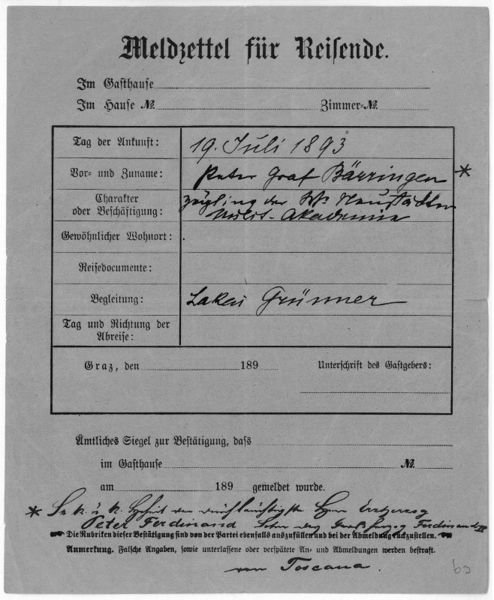 Meldzettel für Reisende.
Im Gasthause
Im Hause № Zimmer-№
Tag der Ankunft: 19. Juli 1893
Vor- und Zuname: Peter Graf Bärringen *
Charakter oder Beschäftigung: Zögling der k.k. Neustädter
Milit.-Akademie
Gewöhnlicher Wohnort:
Reisedocumente:
Begleitung: Lakai Grünner
Tag und Richtung der
Abreise:
Graz, den 189 Unterschrift des Gastgebers:
Ämtliches Siegel zur Bestätigung, dass
im Gasthause №
am 189 gemeldet wurde.
* Se k. u. k. Hoheit der durchlauchtigste Herr Erzherzog
Peter Ferdinand Sohn des Großherzog Ferdinand IV
Die Rubriken dieser Bestätigung sind von der Partei ebenfalls auszufüllen und bei der Abmeldung rückzustellen.
Anmerkung. Falsche Angaben, sowie unterlassene oder verspätete An- und Abmeldungen werden bestraft.
von Toscana.